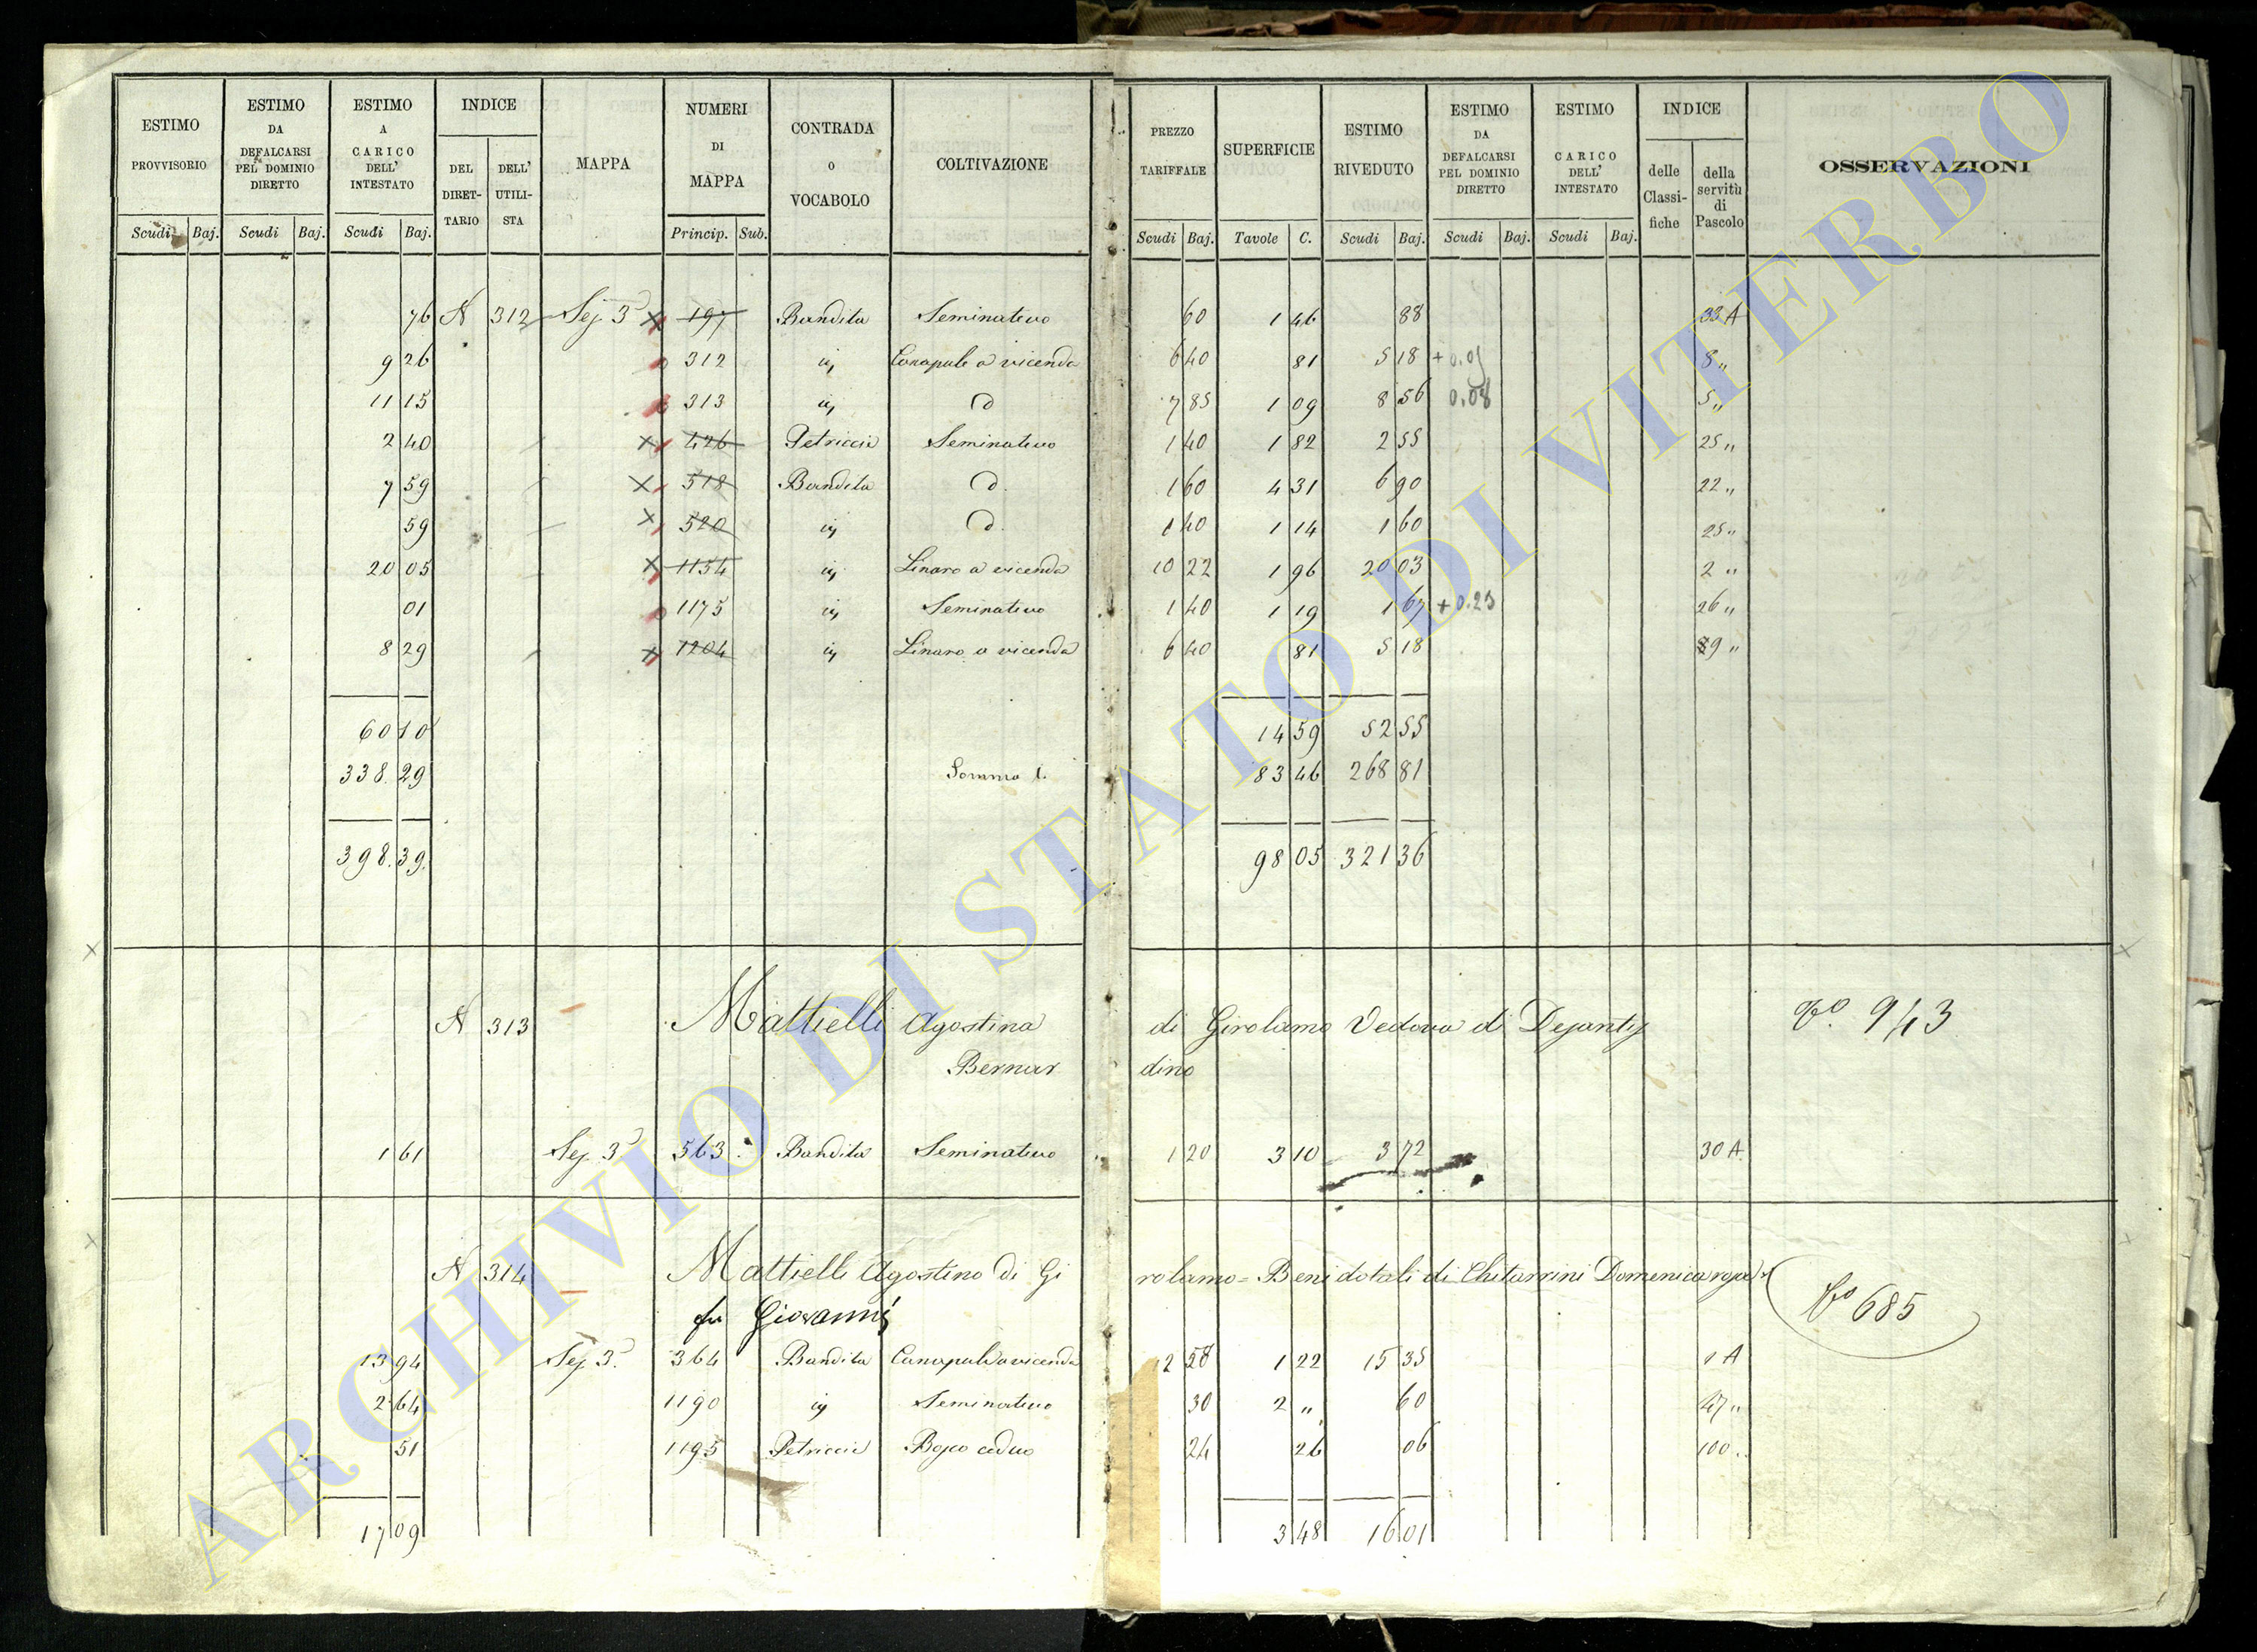 ESTIMO PROVVISORIO ESTIMO DA DEFALCARSI PEL DOMINIO DIRETTO ESTIMO A CARICO DELL' INTESTATO INDICE DEL DIRETTARIO DELL' UTILISTA MAPPA NUMERI DI MAPPA CONTRADA O VOCABOLO COLTIVAZIONE PREZZO TARIFFALE SUPERFICIE ESTIMO RIVEDUTO ESTIMO DA DEFALCARSI PEL DOMINIO DIRETTO ESTIMO CARICO DELL' INTESTATO INDICE delle Classifiche della servitù di Pascolo OSSERVAZIONI
Scudi Baj. Scudi Baj. Scudi Baj. Princip. Sub. Scudi Baj. Tavole C. Scudi Baj. Scudi Baj. Scudi Baj.
76 N 312 Sez 3 197 Bandita Seminativo 60 1 46 88 33 A
9 26 312 Canapule a vicenda 6 40 81 5 18 8 "
11 15 313 7 85 1 09 8 56 0.08 5 "
2 40 426 Petriccie Seminativo 1 40 1 82 2 55 25 "
7 59 518 Bandita 1 60 4 31 6 90 22 "
59 520 1 40 1 14 1 60 25 "
20 05 1154 Linaro a vicenda 10 22 1 96 20 03 2 "
01 1175 Seminativo 1 40 1 19 1 67 + 0.23 26 "
8 29 1204 Linaro a vicenda 6 40 81 5 18 9 "
60 10 14 59 52 55
338 29 Somma 83 46 268 81
398. 39. 98 05 321 36
N 313 Mattielli Agostina di Girolamo Vedova di Dejantis Vo. 943
Bernardino
1 61 Sez 3 563 Bandita Seminativo 1 20 3 10 3 72 30 A.
N 314 Mattielli Agostino di Girolamo = Beni dotali di Chitarrini Domenica
fu Giovanni Vo 685
13 94 Sez 3. 364 Bandita Canapule a vicenda 12 58 1 22 15 35 1 A
2 64 1190 Seminativo 30 2 " 60 47 "
51 1195 Petriccie Bosco ceduo 24 26 06 100
17 09 3 48 16 01
ARCHIVIO DI STATO DI VITERBO